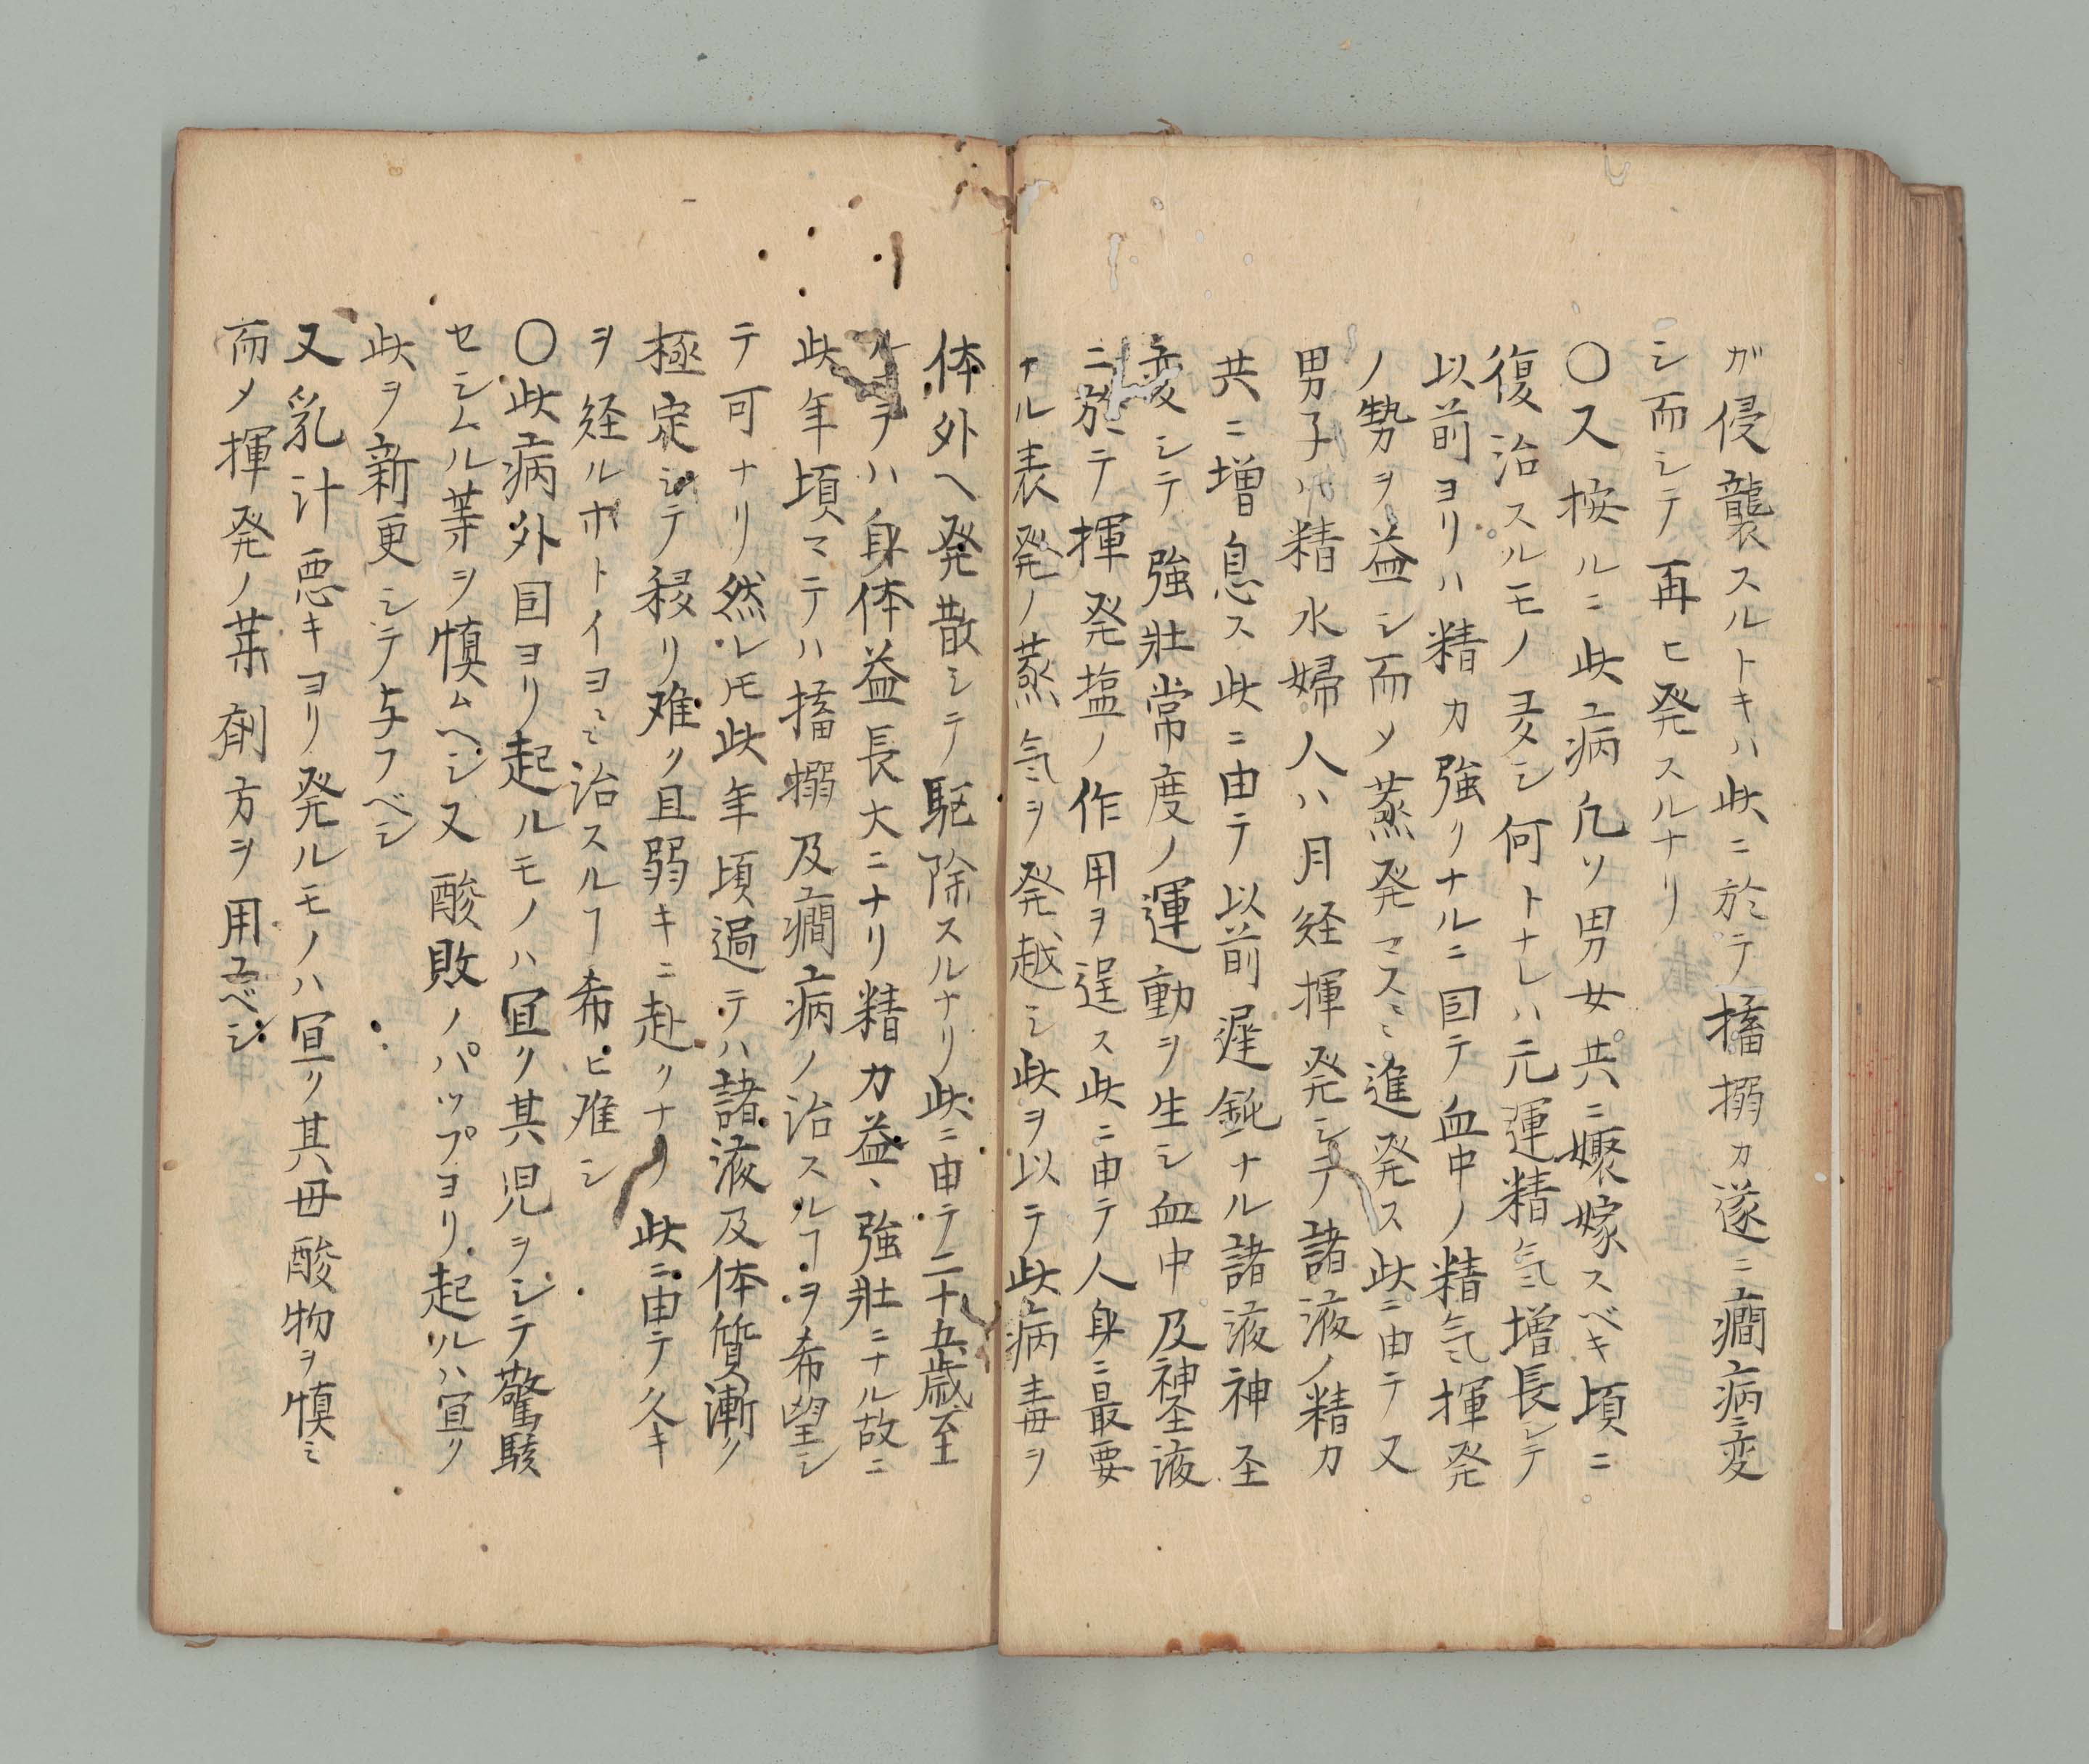 ガ侵襲スルトキハ此ニ於テ搐搦カ遂ニ癇病ニ変
シ而シテ再ヒ発スルナリ
〇又按ルニ此病凡ソ男女共ニ嫁スベキ頃ニ
復治スルモノ多シ何トナレハ元運精気増長シテ
以前ヨリハ精力強リナルニ因テ血中ノ精気揮発
ノ勢ヲ益シ而メ蒸発マスミ進発ス此ニ由テ又
男子ハ精水婦人ハ月経揮発シテ諸液ノ精力
共ニ増息ス此ニ由テ以前遅鈍ナル諸液神圣
変シテ強壮常度ノ運動ヲ生シ血中及神圣液
ニ於テ揮発塩ノ作用ヲ逞ス此ニ由テ人身ニ最要
ナル表発ノ蒸気ヲ発越シ此ヲ以テ此病毒ヲ
体外ヘ発散シテ駆除スルナリ此ニ由テ二十五歳至
ルヿハ身体益長大ニナリ精力益、強壮ニナル故ニ
此年頃マテハ搐搦及癇病ノ治スルヿヲ希望シ
テ可ナリ然レ𪜈此年頃過テハ諸液及体質漸ク
極定シテ移リ难ク且弱キニ赴クナリ此ニ由テ久キ
ヲ経ルホトイヨミ治スルヿ希ヒ难シ
〇此病外因ヨリ起ルモノハ宜ク其児ヲシテ驚駭
セシムル等ヲ慎ムヘシ又酸敗ノパップヨリ起ルハ宜ク
此ヲ新更シテ与フベシ
又乳汁悪キヨリ発ルモノハ宜ク其母酸物ヲ慎ミ
而メ揮発ノ薬剤方ヲ用ユベシ